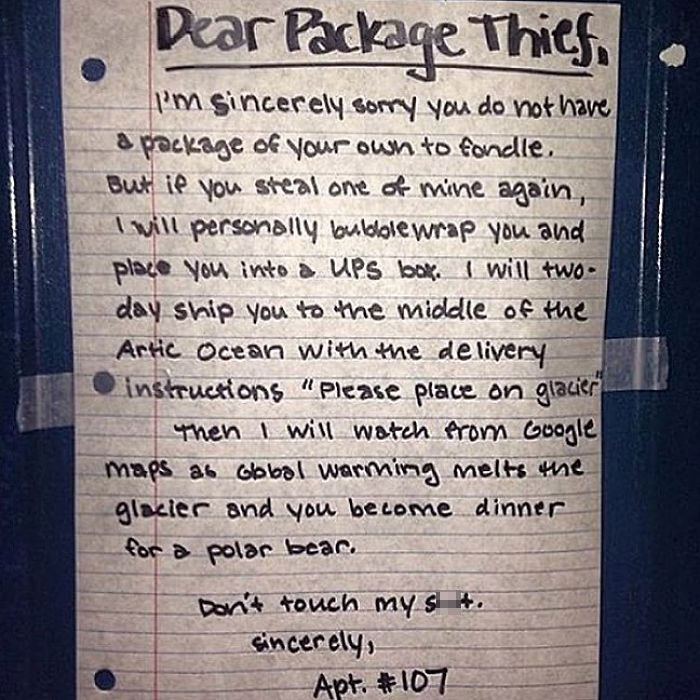 Dear Package Thief,
I'm sincerely sorry you do not have
a package of your own to fondle.
But if you steal one of mine again,
I will personally bubblewrap you and
place you into a UPS box. I will two-
day ship you to the middle of the
Artic Ocean with the delivery
instructions "Please place on glacier"
Then I will watch from Google
maps as Global warming melts the
glacier and you become dinner
for a polar bear.
Don't touch my s t.
sincerely,
Apt. #107